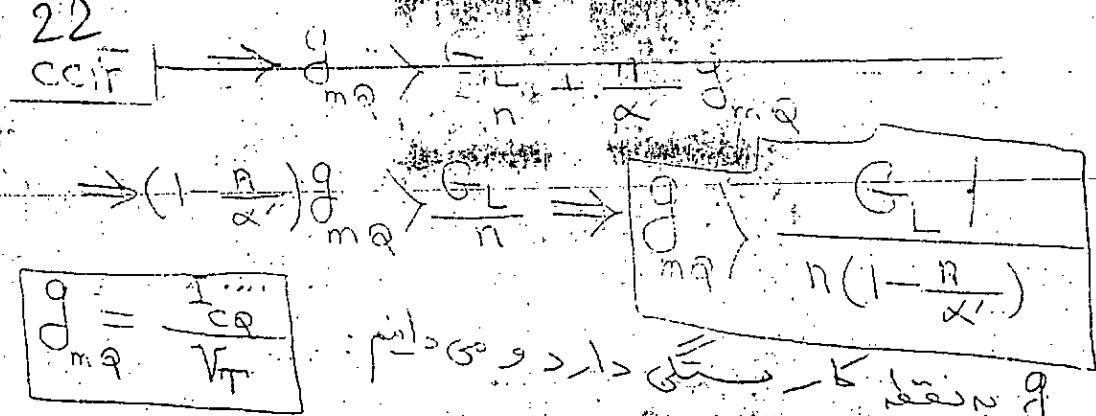 22
CCIT ⇒ g_mQ > G_L/n + n/α' g_mQ
⇒ (1 - n/α') g_mQ > G_L/n ⇒ g_mQ > G_L / n(1 - n/α')
g_mQ = I_CQ / V_T
g به نقطه کار بستگی دارد و می دانیم